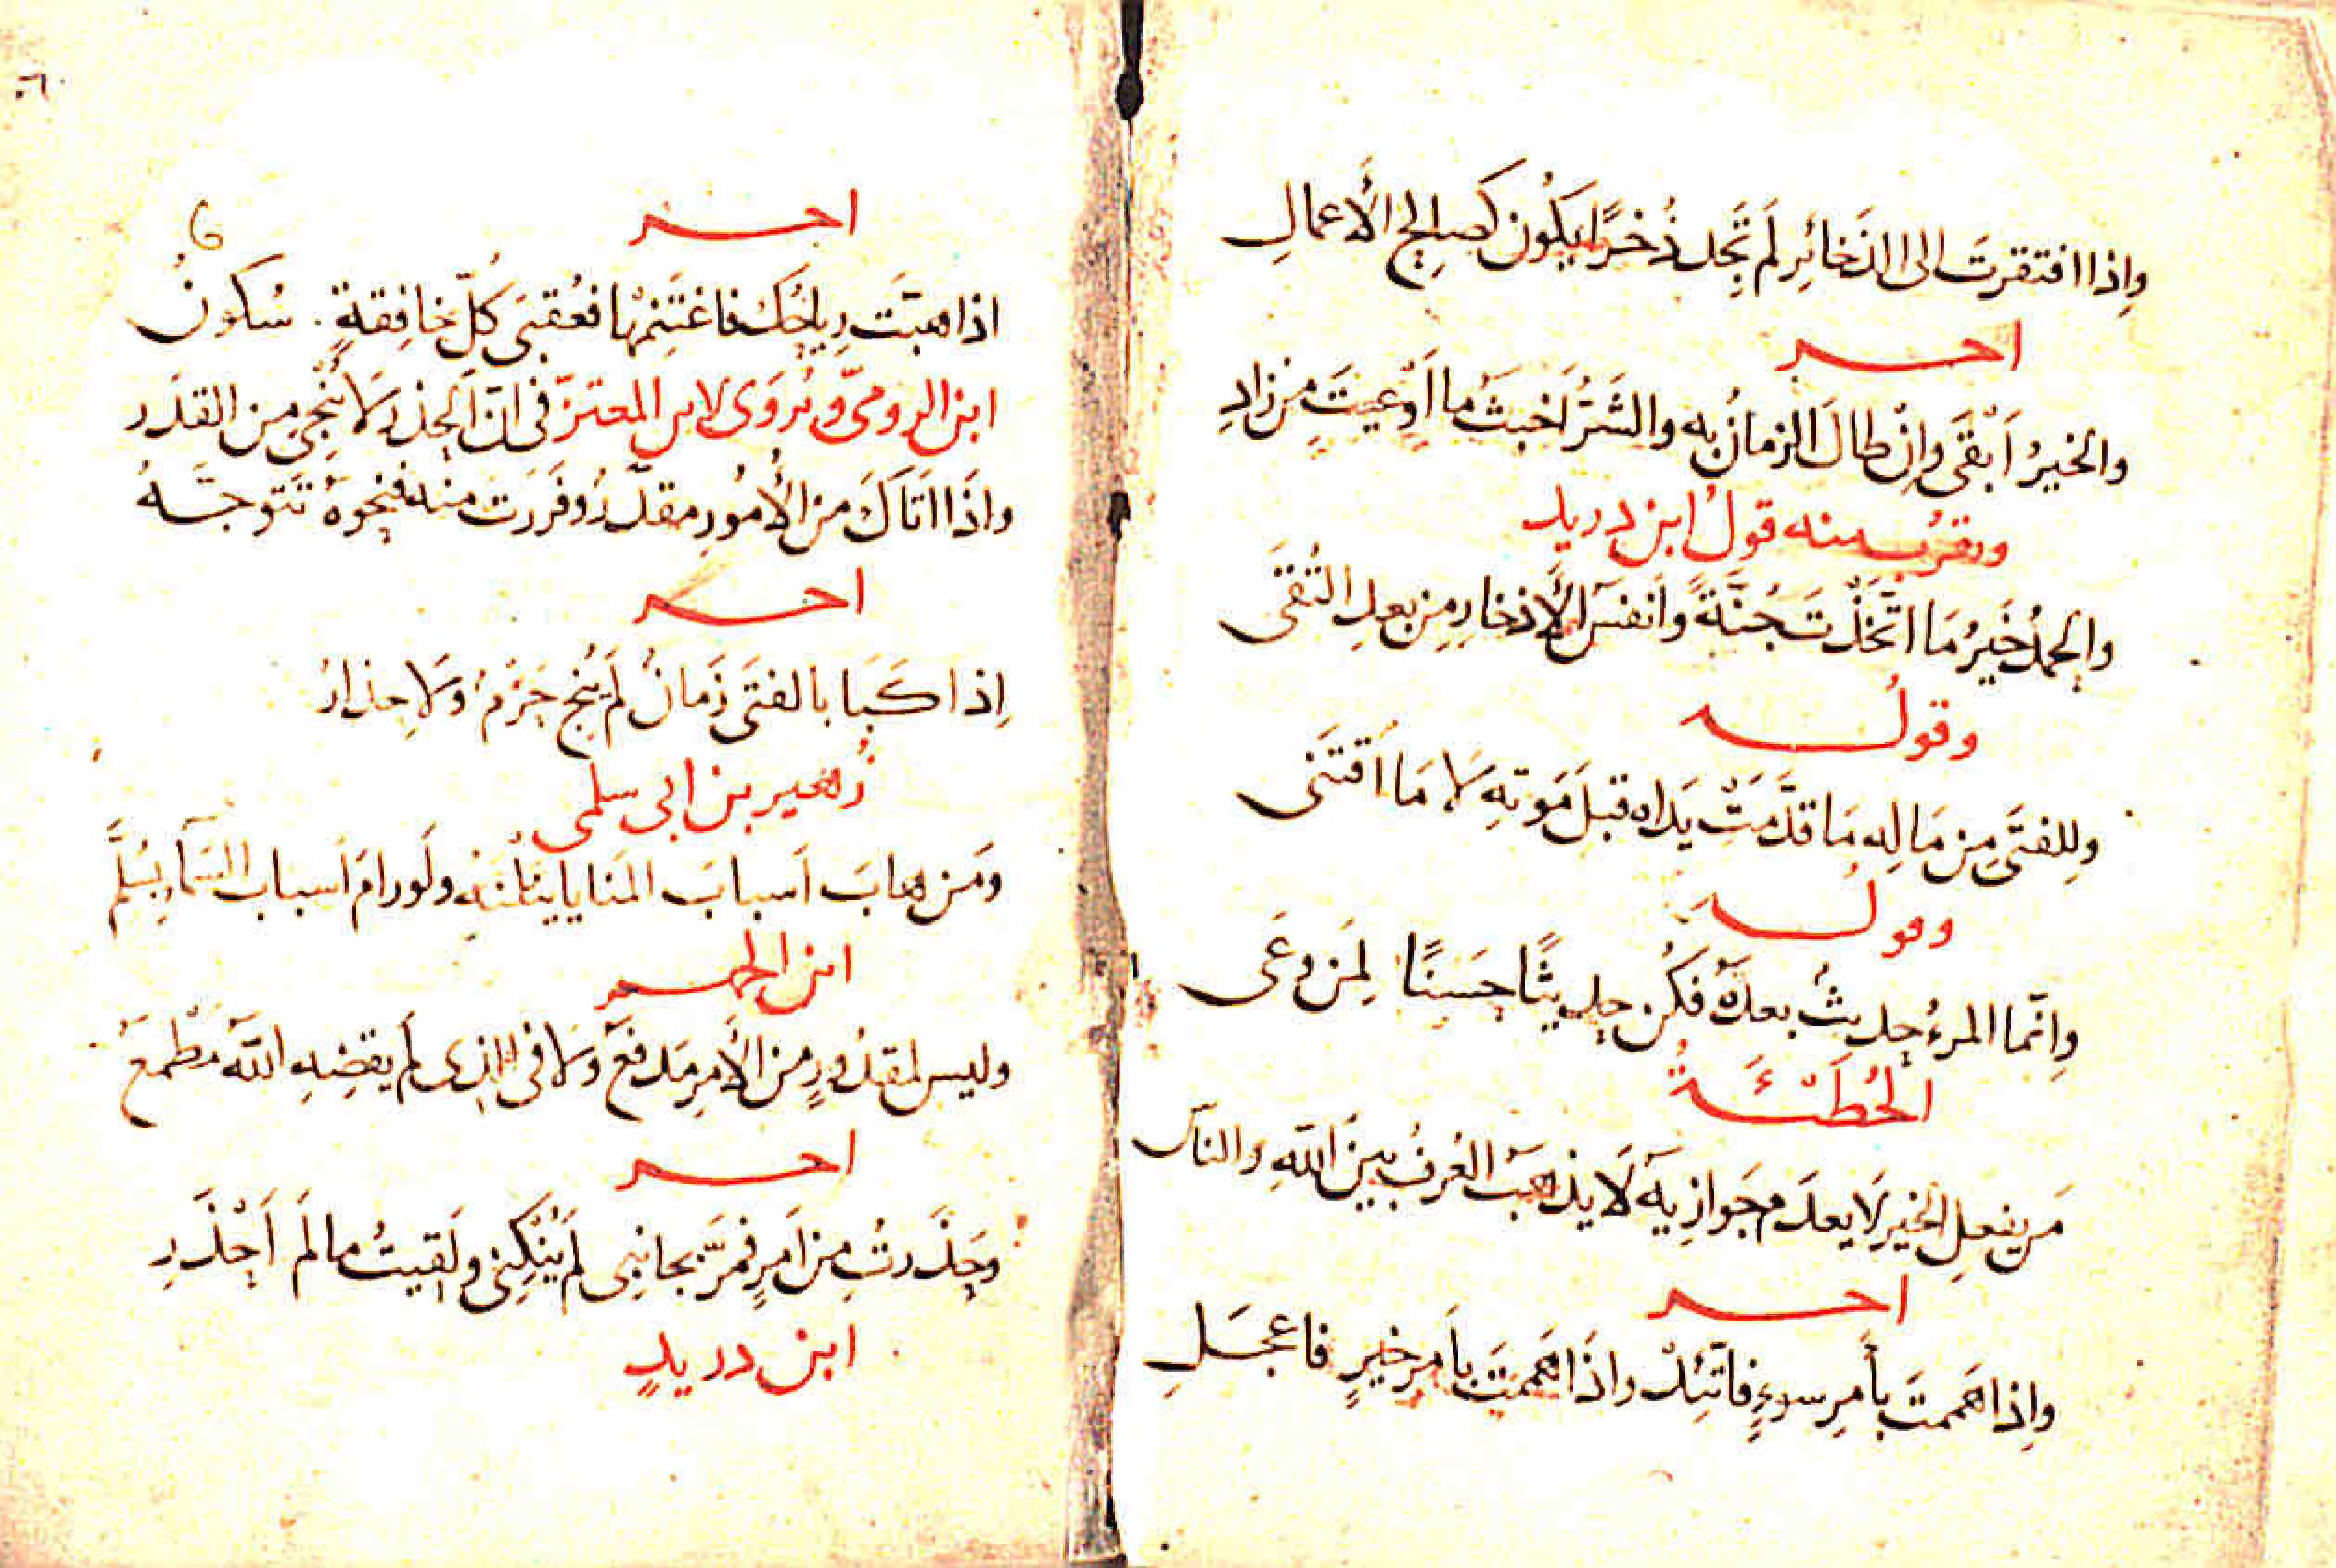 وإذا افتقرتَ الى الذخائرِ لَم تَجِد ذُخرًا يَكُون كَصالِحِ الأعمالِ
اخـــر
والخيرُ أَبْقَى وإنْ طالَ الزمانُ به والشَرُّ أخبثُ ما أَوْعيتَ مِن زادِ
ويقرُب منه قولُ ابن دريد
والحمدُ خَيرُ مَا اتَّخَذْتَ جُنَّةً وأنفَسُ الأذخارِ مِن بعدِ التُقَى
وقولـــه
ولِلفتَى مِن مَالِهِ مَا قدَّمَتْ يَداه قبلَ مَوتِهِ لا مَا اقتَنَى
وقولـــه
وإنّما المرءُ حديثٌ بعدَهُ فكُن حديثًا حَسَنًا لِمَن وَعَى
الحُطَيْئَـــةُ
مَن يفعلِ الخيرَ لَا يعدَم جَوازِيَهُ لَا يذهَبُ العُرفُ بينَ اللهِ والناس
اخـــر
وإذا هَممتَ بأمرِ سوءٍ فاتَّئِدْ وإذَا هَممتَ بأمرِ خيرٍ فاعجَـلِ
٦٠
٦
اخـــر
اذا هبَّت رِياحُك فاغتَنِمْها فعُقبَى كُلّ خافِقةٍ سُكونُ
ابن الرومىّ ويُروَى لابن المعتزّ فى انّ الحذرَ لَا يُنجِى مِن القدَر
واذَا اتَاكَ من الأُمُورِ مقدَّرٌ وفَرَرتَ منه فنحوَهُ تَتوجَّـهُ
اخـــر
اِذا كَبَا بالفتَى زَمانٌ لَم يُنجِ حَزمٌ وَلَا حِذارُ
زُهير بن ابى سلمى
ومَن هابَ أسبابَ المَنايا يَنَلْنَهُ ولَو رامَ أسبابَ السَمآءِ بسُلَّمِ
ابن الجهـــم
وليس لمقدُورٍ من الأمرِ مَدفعٌ وَلا فى الذى لَم يقضِهِ اللهُ مَطْمعُ
اخـــر
وحَذَرتُ مِن أمرٍ فمَرَّ بجانِبى لَم يُنْكِنى ولَقِيتُ ما لَم أَحْذَرِ
ابن دريدٍ